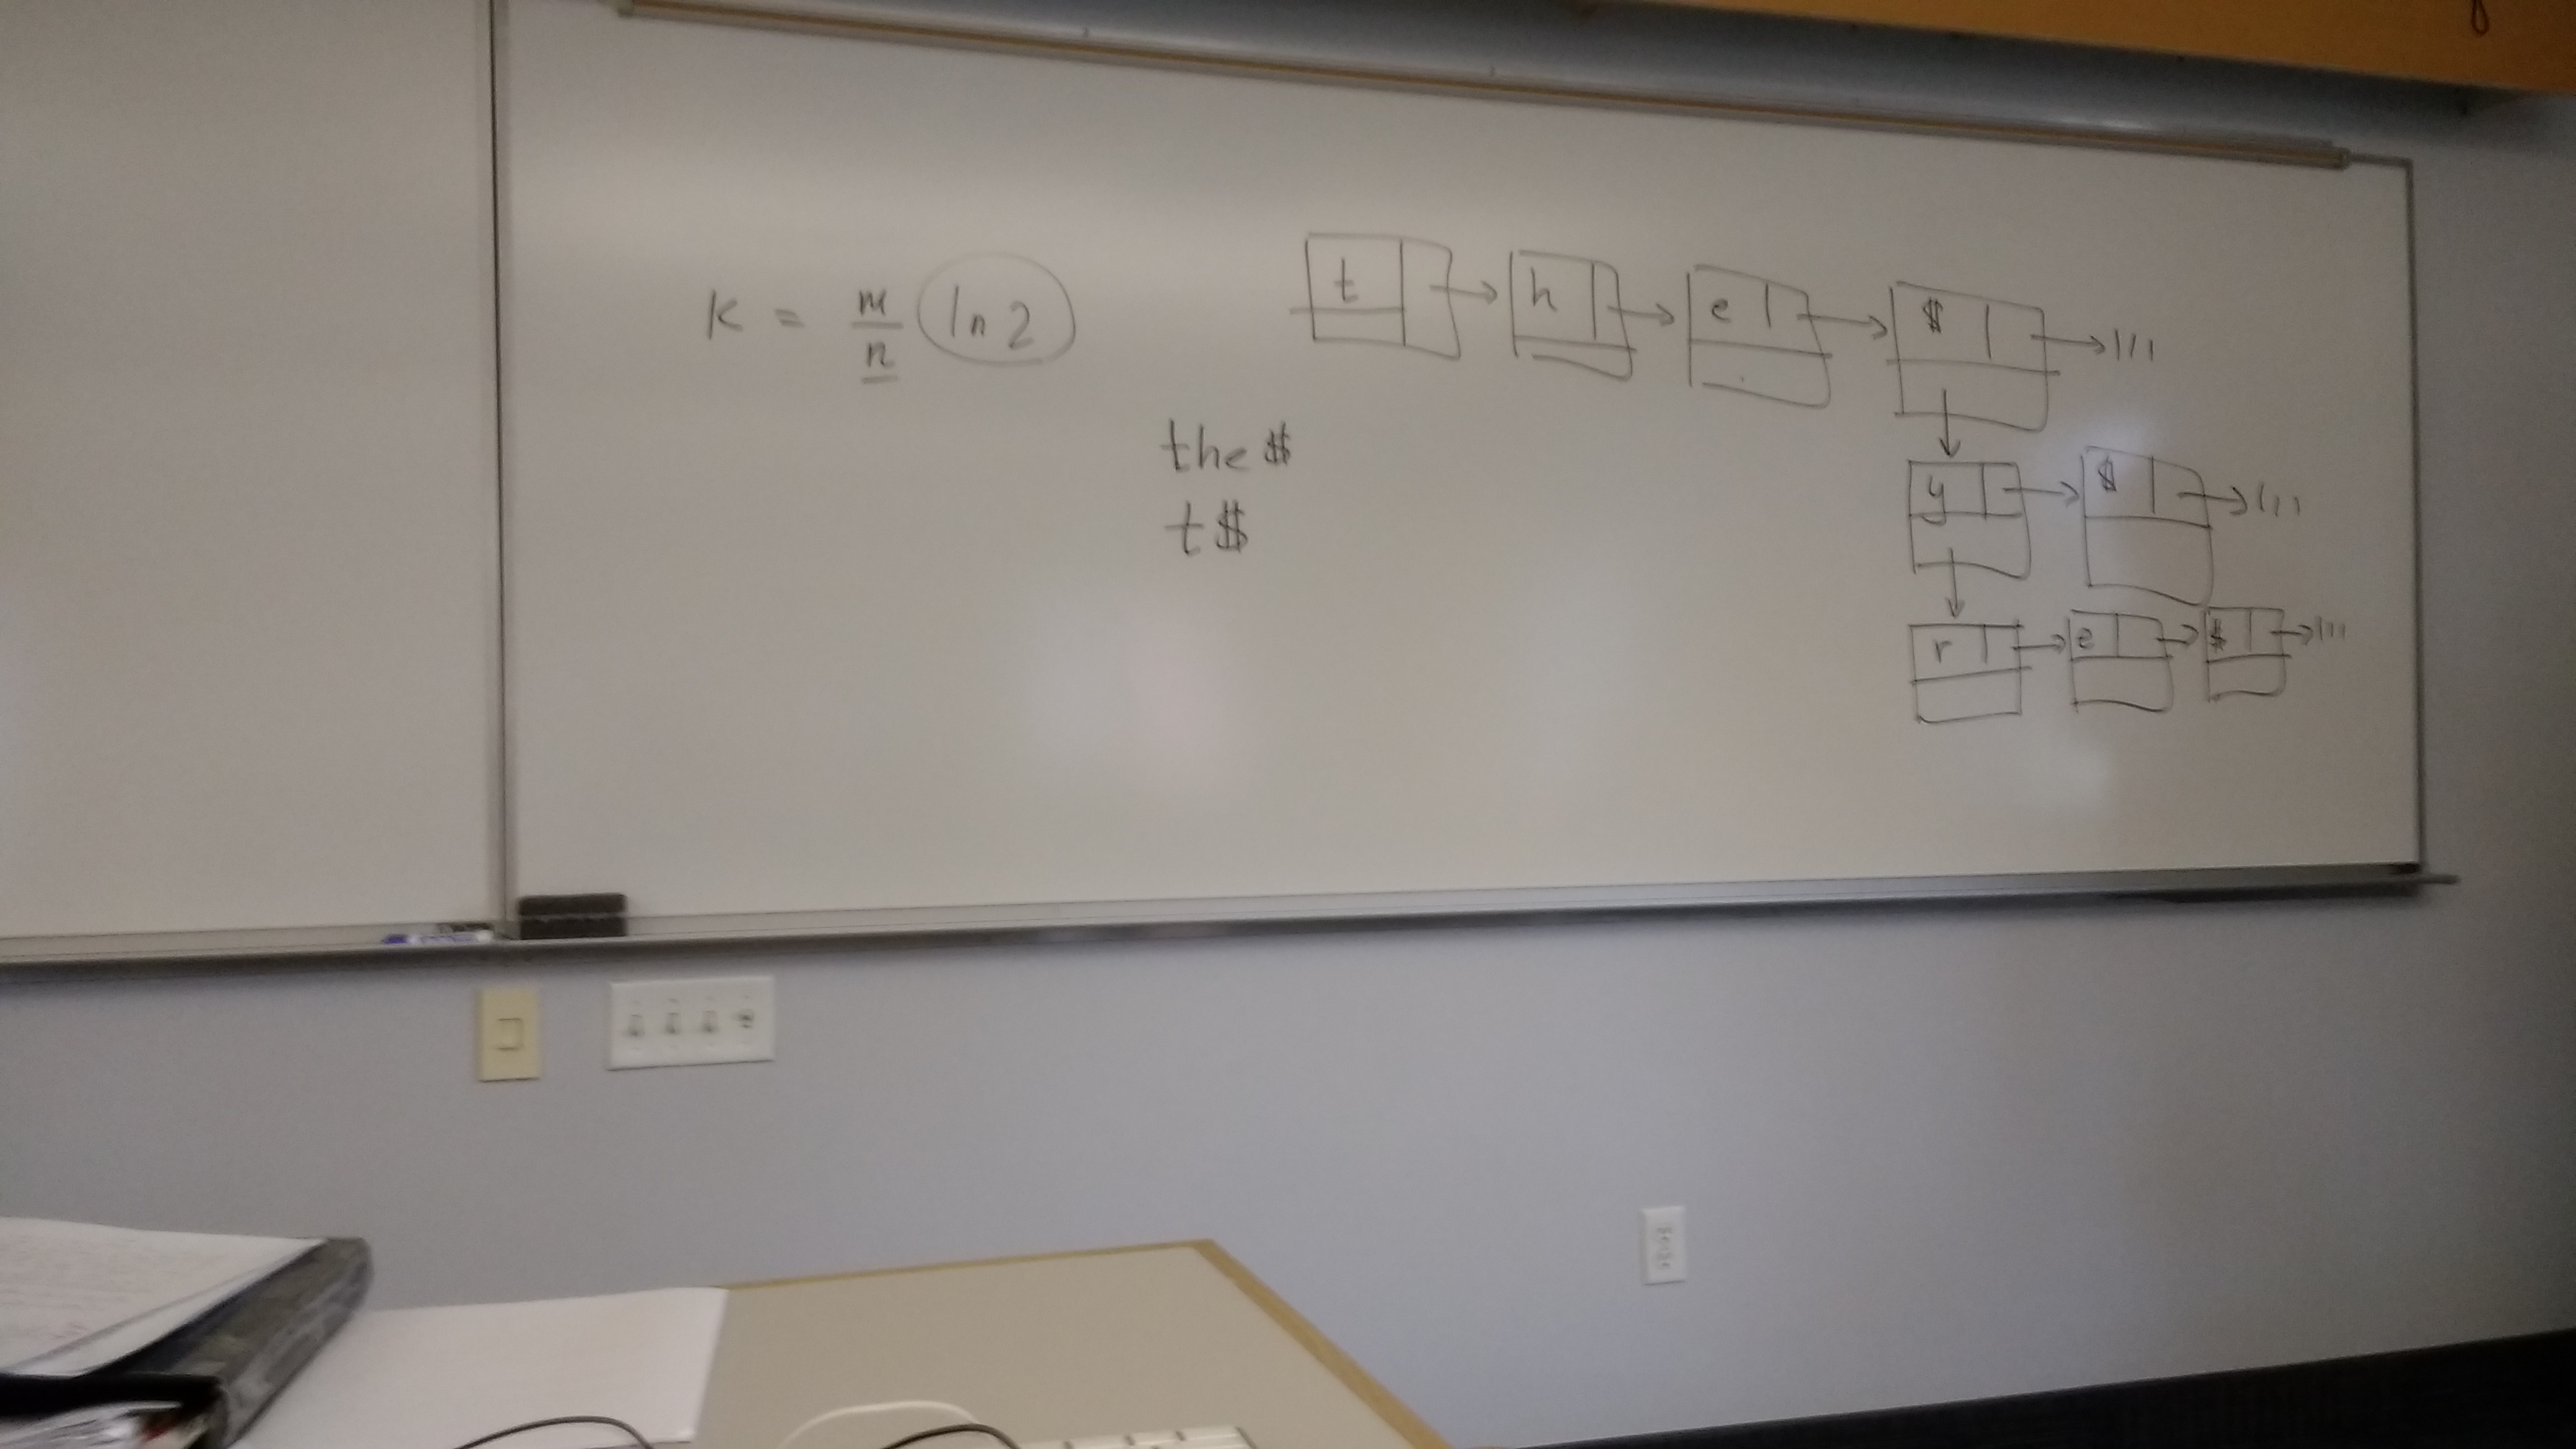 K = m/n ln 2
t h e $
the $
t $
y $
r e $